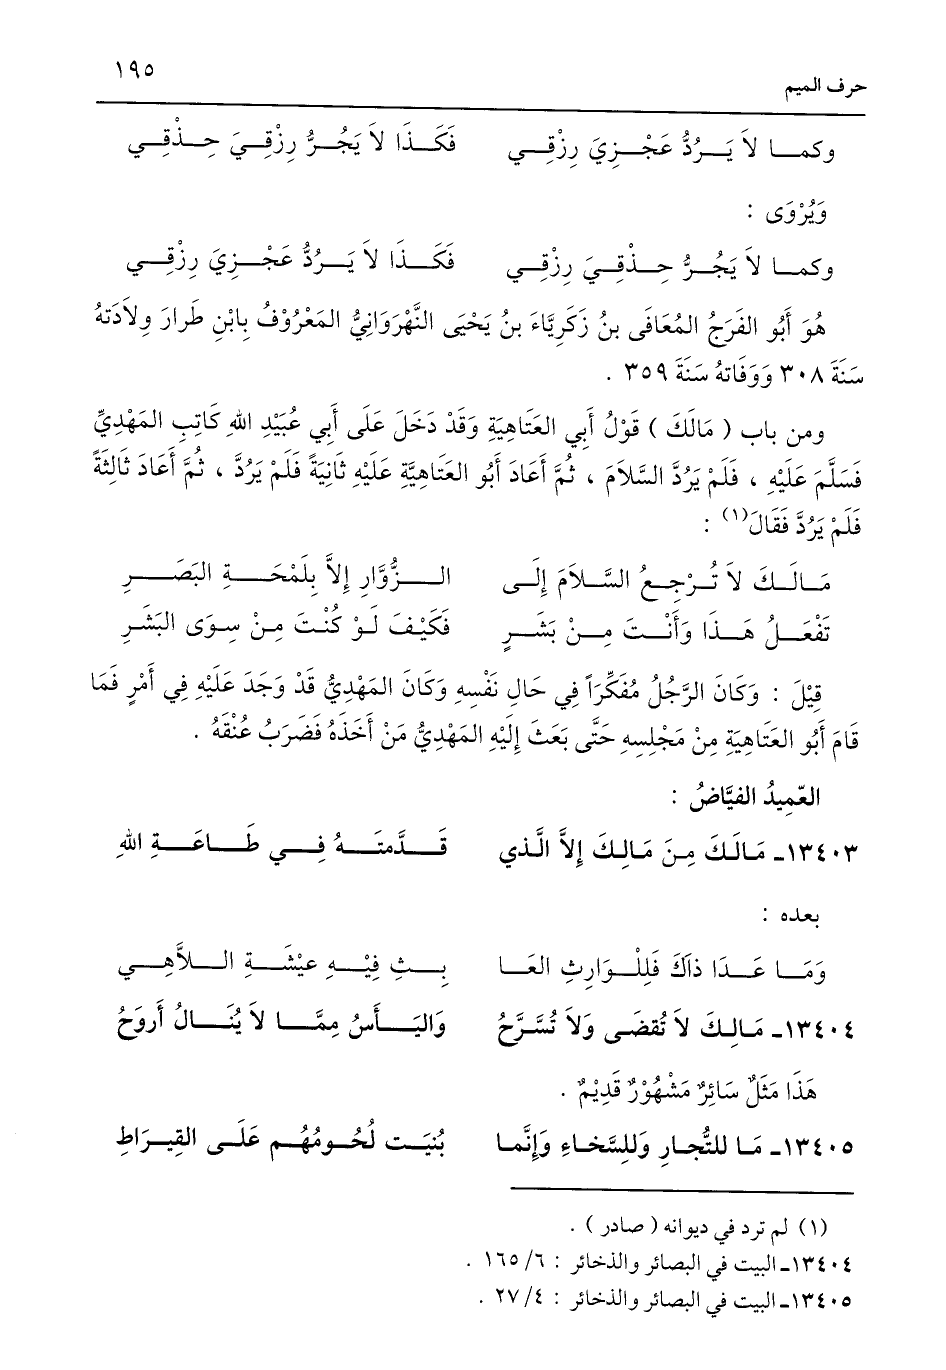 ١٩٥
حرف الميم
وكمـــا لاَ يَـــرُدُّ عَجْـــزِيَ رِزْقِـــي فَكَـــذَا لاَ يَجُـــرُّ رِزْقِـــيَ حِـــذْقِـــي
وَيُرْوَى :
وكمـــا لاَ يَجُـــرُّ حِـــذقِـــيَ رِزْقِـــي فَكَـــذَا لاَ يَـــرُدُّ عَجْـــزِيَ رِزْقِـــي
هُوَ أَبُو الفَرَجُ المُعَافَى بنُ زَكَرِيَّاءَ بنُ يَحْيَى النَّهْرَوَانِيُّ المَعْرُوْفُ بِابْنِ طَرارَ وِلاَدَتهُ
سَنَةَ ٣٠٨ وَوَفَاتهُ سَنَةَ ٣٥٩ .
ومن باب ( مَالَكَ ) قَوْلُ أَبِي العَتَاهِيَةِ وَقَدْ دَخَلَ عَلَى أَبِي عُبَيْدِ اللهِ كَاتِبِ المَهْدِيِّ
فَسَلَّمَ عَلَيْهِ ، فَلَمْ يَرُدَّ السَّلاَمَ ، ثُمَّ أَعَادَ أَبُو العَتَاهِيَّةِ عَلَيْهِ ثَانِيَةً فَلَمْ يَرُدَّ ، ثُمَّ أَعَادَ ثَالِثَةً
فَلَمْ يَرُدَّ فَقَالَ(١) :
مَـالَـكَ لاَ تُـرْجِـعُ السَّـلاَمَ إِلَـى الـــزُّوَّارِ إِلاَّ بِلَمْحَـــةِ البَصَـــرِ
تَفْعَـــلُ هَـــذَا وَأَنْـــتَ مِـــنْ بَشَـــرٍ فَكَيْـفَ لَـوْ كُنْـتَ مِـنْ سِـوَى البَشَرِ
قِيْلَ : وَكَانَ الرَّجُلُ مُفَكِّرَاً فِي حَالِ نَفْسِهِ وَكَانَ المَهْدِيُّ قَدْ وَجَدَ عَلَيْهِ فِي أَمْرٍ فَمَا
قَامَ أَبُو العَتَاهِيَةِ مِنْ مَجْلِسِهِ حَتَّى بَعَثَ إِلَيْهِ المَهْدِيُّ مَنْ أَخَذَهُ فَضَرَبُ عُنْقَهُ .
العَّمِيدُ الفيَّاضُ :
١٣٤٠٣ـ مَـالَـكَ مِـنَ مَـالِـكَ إِلاَّ الَّـذي قَـــدَّمتَـــهُ فِـــي طَـــاعَـــةِ اللهِ
بعده :
وَمَـــا عَـــدَا ذَاكَ فَلِلْـــوَارِثِ العَـــا بِـــثِ فِيْـــهِ عِيْشَـــةِ الـــلاَّهِـــي
١٣٤٠٤ـ مَـالِـكَ لاَ تُقضَـى وَلاَ تُسَّـرَّحُ وَاليَـــأسُ مِمَّـــا لاَ يُنَـــالُ أَروَحُ
هَذَا مَثَلٌ سَائِرٌ مَشْهُوْرٌ قَدِيْمٌ .
١٣٤٠٥ـ مَـا للتُّجـارِ وَلِلسَّخـاءِ وَإِنَّمـا بُنيَـت لُحـومُهُـم عَلَـى القِيـرَاطِ
(١) لم ترد في ديوانه ( صادر ) .
١٣٤٠٤ـ البيت في البصائر والذخائر : ٦/ ١٦٥ .
١٣٤٠٥ـ البيت في البصائر والذخائر : ٤/ ٢٧ .